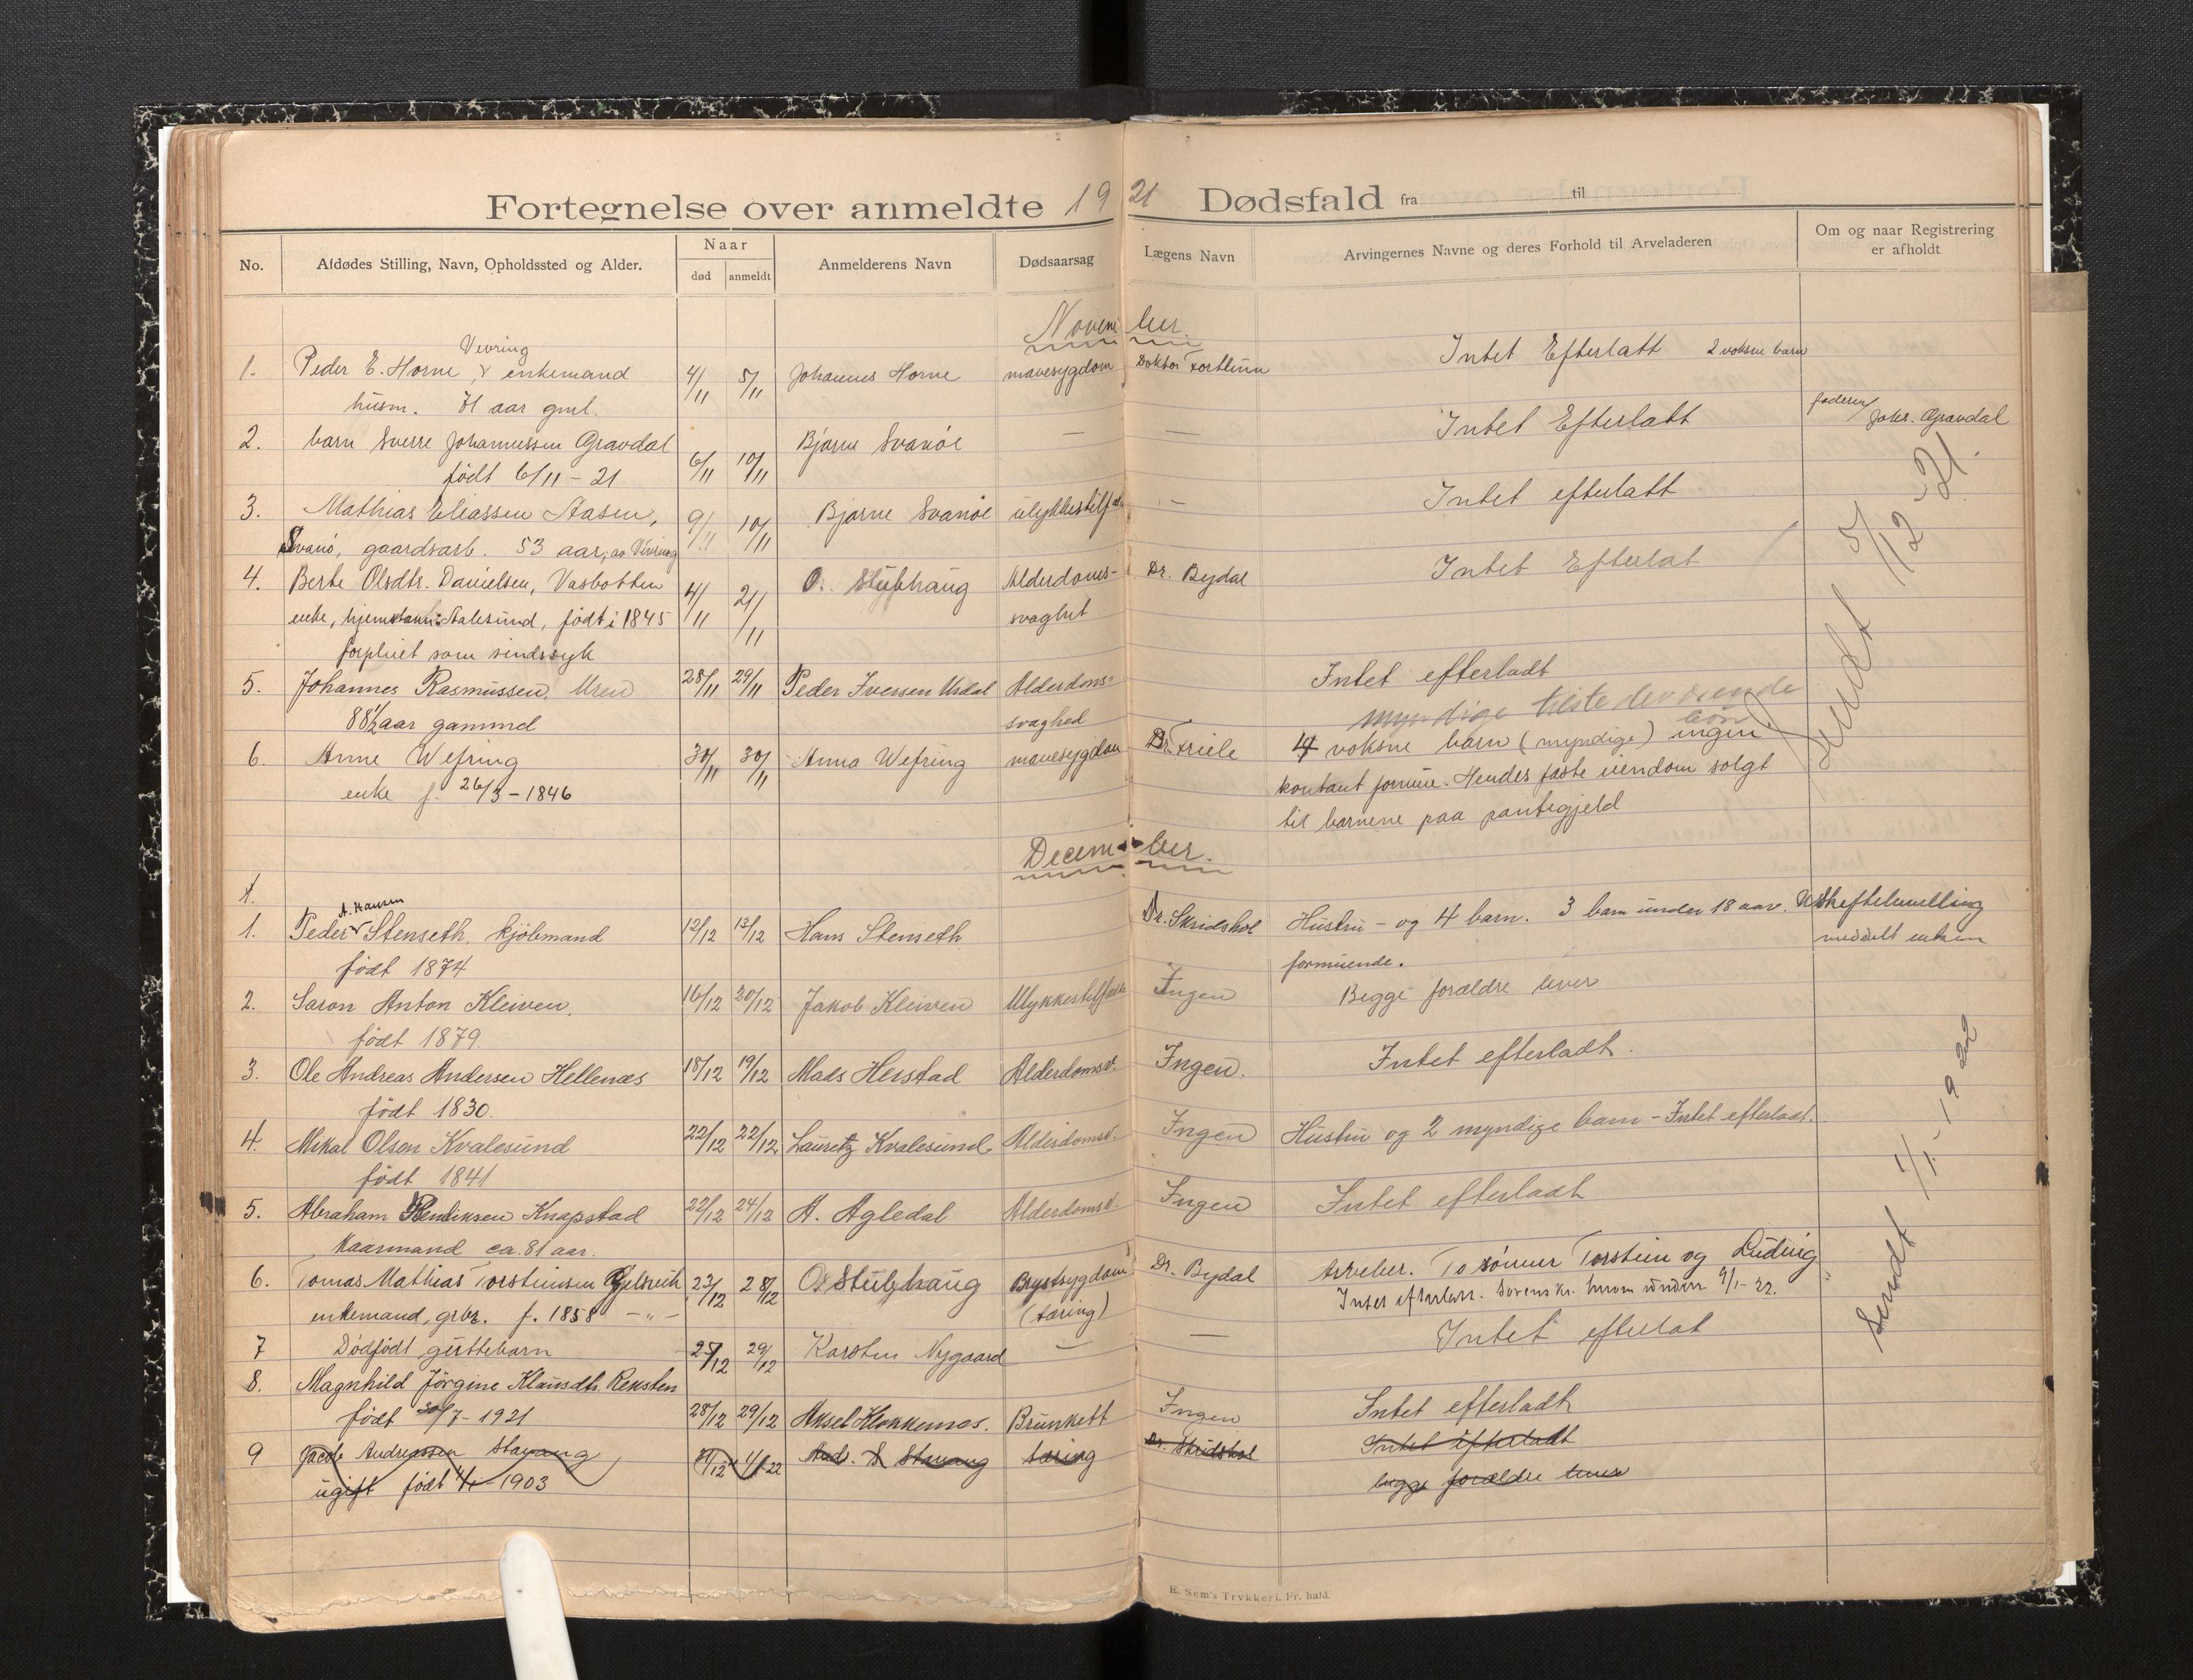 Fortegnelse over anmeldte 1921 Dødsfald fra til
No. Afdødes Stilling, Navn, Opholdssted og Alder. Naar død anmeldt Anmelderens Navn Dødsaarsag Lægens Navn Arvingernes Navne og deres Forhold til Arveladeren Om og naar Registrering er afholdt
November.
Vevring
1. Peder E. Horne, enkemand 4/11 5/11 Johannes Horne mavesygdom Doktor Intet Efterlatt 2 voksne barn
husm. 71 aar gml.
2. barn Sverre Johannessen Gravdal 6/11 10/11 Bjarne Svanöe — — Intet Efterlatt faderen Johs. Gravdal
født 6/11 - 21
3. Mathias Eliassen Aasen, 9/11 10/11 Bjarne Svanöe ulykkestilf — Intet efterlatt
Svanö, gaardsarb. 53 aar, Vevring
4. Berte Olsdtr. Danielsen, Vasbotten 4/11 21/11 O. Stubhaug Alderdoms- Dr. Bydal Intet Efterlat
enke, Aalesund, født i 1845 svaghet
forpleiet som sindssyk
5. Johannes Rasmussen Uren 28/11 29/11 Peder Iversen Urdal Alderdoms= Intet efterladt
88½ aar gammel svaghed myndige
6. Anne Wefring 30/11 30/11 Anna Wefring mavesygdom Dr. Friele 4 voksne barn (myndige) ingen
enke f. 26/3 - 1846 kontant formue. Hendes faste eiendom solgt
til barnene paa pantegjeld
Sendt 5/12 - 21.
December.
1.
A. Hansen
1. Peder Stenseth, kjöbmand 12/12 13/12 Hans Stenseth Dr. Skridshol Hustru - og 4 barn. 3 barn under 18 aar. Uskiftebevilling
født 1874 formuende. meddelt enken
2. Saron Anton Kleiven, 16/12 20/12 Jakob Kleiven Ulykkestilfælde Ingen Begge forældre lever
født 1879.
3. Ole Andreas Andersen Hellenæs 18/12 19/12 Mads Herstad Alderdomsv. Ingen. Intet efterladt.
født 1830.
4. Mikal Olsen Kvalesund 22/12 22/12 Lauritz Kvalesund Alderdomsv. Ingen Hustru og 2 myndige barn - Intet efterladt.
født 1841
5. Abraham Henriksen Knapstad 22/12 24/12 A. Agledal Alderdomsv. Ingen Intet efterladt
Kaarmand ca. 81 aar.
6. Tomas Mathias Torsteinsen Gjelsvik 23/12 28/12 O. Stubhaug Brystsygdom Dr. Bydal Arveber. To sönner Torstein og Ludvig
enkemand, grbr. f. 1858 - „ - (tæring) Intet efterlatt. 9/1 - 22.
7 Dødfødt guttebarn 25/12 29/12 Karsten Nygaard — — Intet efterlat
8. Magnhild Jörgine Klausdtr. Reksten
født 30/7 - 1921 28/12 29/12 Aksel Klokkernes. Brunkett Ingen Intet efterladt
9 Jacob Andreassen Stavang 31/12 4/1 22 And. S Stavang tæring Dr. Skridshol Intet efterladt
ugift født 4/1 1903 begge forældre lever
Sendt 1/1 - 1922
E. Sem's Trykkeri, Fr. hald.